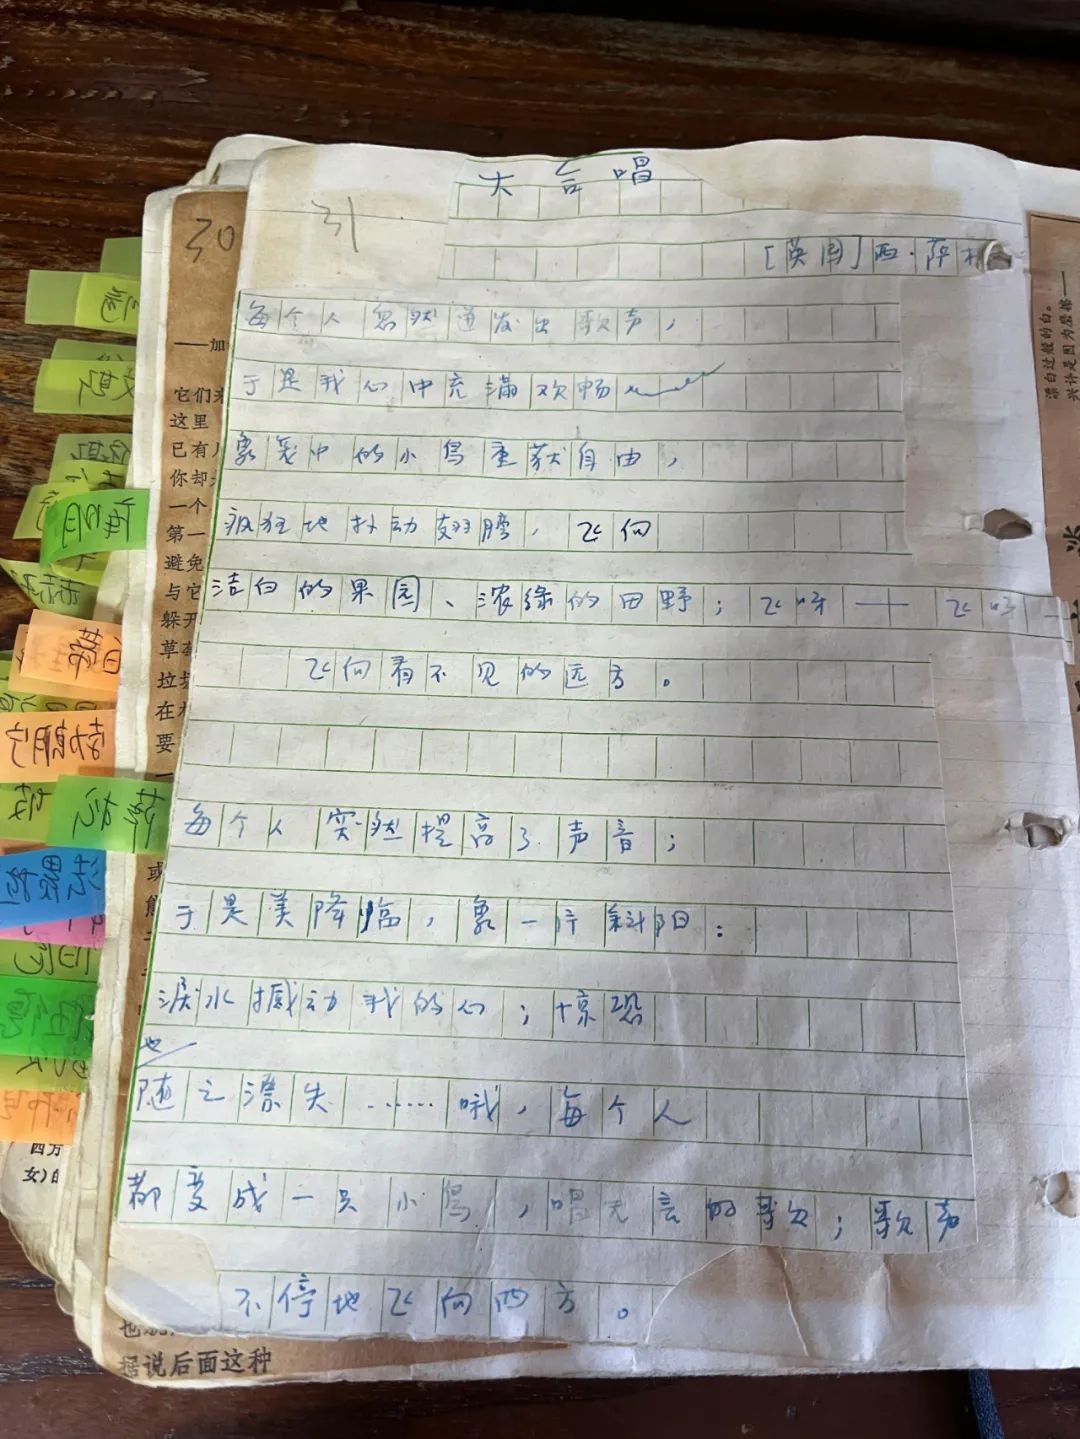 31
30
大合唱
[英国]西·萨
每个人忽然迸发出歌声，
于是我心中充满欢畅
象笼中的小鸟重获自由，
疯狂地抖动翅膀，飞向
洁白的果园、浓绿的田野；飞呀——飞呀—
飞向看不见的远方。
每个人突然提高了声音；
于是美降临，象一片斜阳：
泪水撼动我的心；惊恐
也
随之漂失……哦，每个人
都变成一只小鸟，唱无言的歌；歌声
不停地飞向四方。
——加
它们
这里
已有
你却
一个
第一
避免
与它
躲开
草
垃圾
在
要
或
四方
女)的
据说后面这种
漂白过般的白。
兴许是因为磨擦——